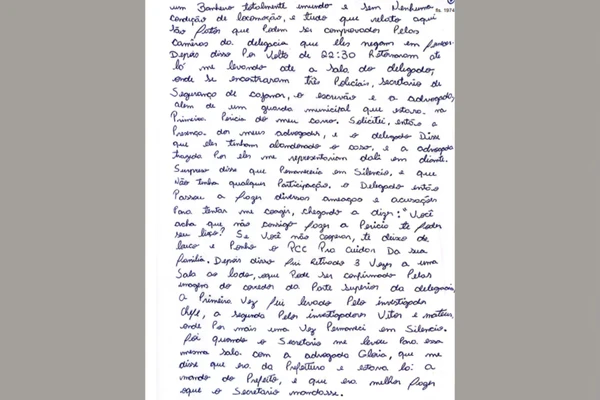 um Banheiro totalmente imundo e sem Nenhuma
fls. 1974
condição de locomoção, e tudo que relato aqui
são fatos que Podem ser comprovados Pelas
câmeras da delegacia que eles negam em
Depois disso Por volta de 22:30 Retornaram até
lá me levando até a sala do delegado,
onde se encontraram três Policiais, secretario de
Segurança de cajamar, o escrivão e a advogada,
além de um guarda municipal que estava na
Primeira Pericia do meu carro. Solicitei, então a
Presença dos meus advogados, e o delegado Disse
que eles tinham abandonado o caso, e a advogada
trazida Por eles me representariam dali em diante.
Surpreso disse que Permaneceria em Silencio, e que
Não tinha qualquer Participação. o Delegado então
Passou a fazer diversas ameaças e acusações
Para tentar me coagir, chegando a dizer: "Você
acha que não consigo fazer a Pericia te foder
seu lixo? Se Você não cooperar, te deixo de
laico e Ponho o PCC Pra cuidar Da sua
familia. Depois disso fui Retirado 3 Vezes a uma
Sala ao lado, oque Pode ser confirmado Pelas
imagens do corredor da Parte Superior da delegacia,
a Primeira Vez fui levado Pelo investigador
a segunda Pelos investigadores Vitor e mateus,
onde Por mais uma Vez Permaneci em Silencio.
foi quando o Secretario me levou Para essa
mesma sala com a advogada Gloria, que me
disse que era da Prefeitura e estava lá a
mando do Prefeito, e que era melhor fazer
oque o Secretario mandasse.